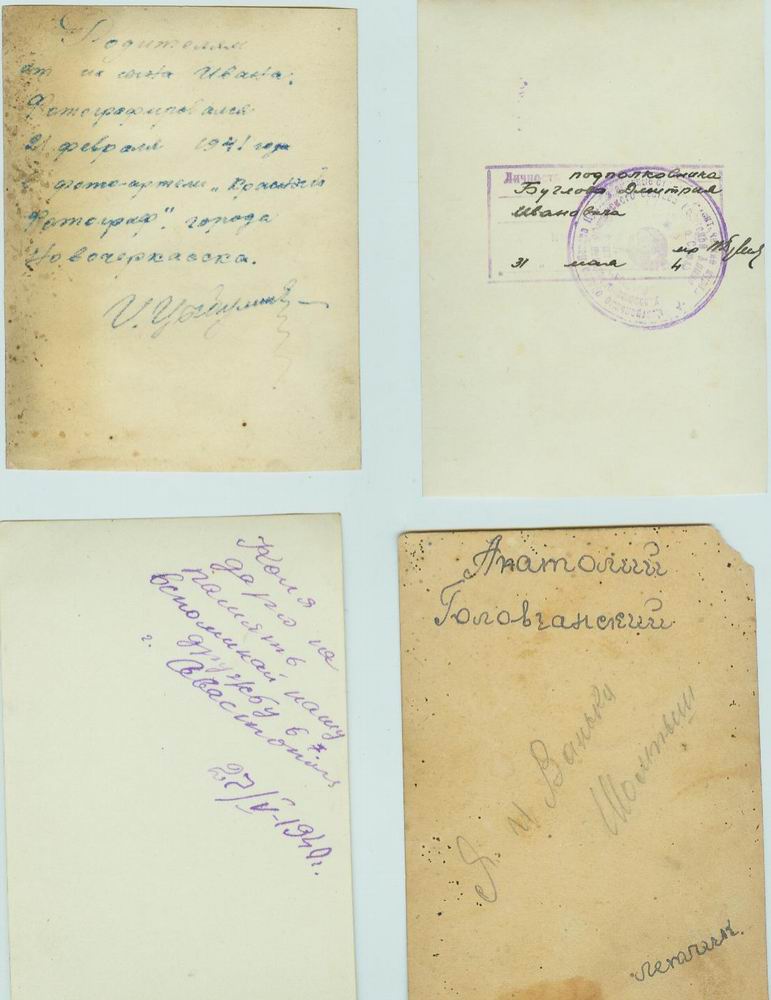 Родителям
от их сына Ивана.
Фотографировался
21 февраля 1941 года
фото-артели „Красный
Фотограф". города
Новочеркасска.
Личность подполковника
Буглова Дмитрия
Ивановича
31 мая 4
Коля
дарю на
память
вспоминай нашу
дружбу в
г. Севастополь
27/V-1940г.
Анатолий
Головчанский
Я и Ванька
летчик.